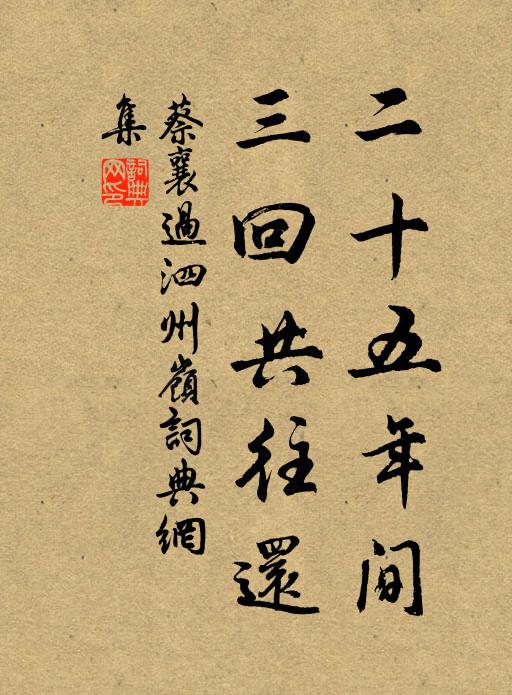 二十五年間
三回共往還
蔡襄過泗州嶺詞典網
集
詞典网印